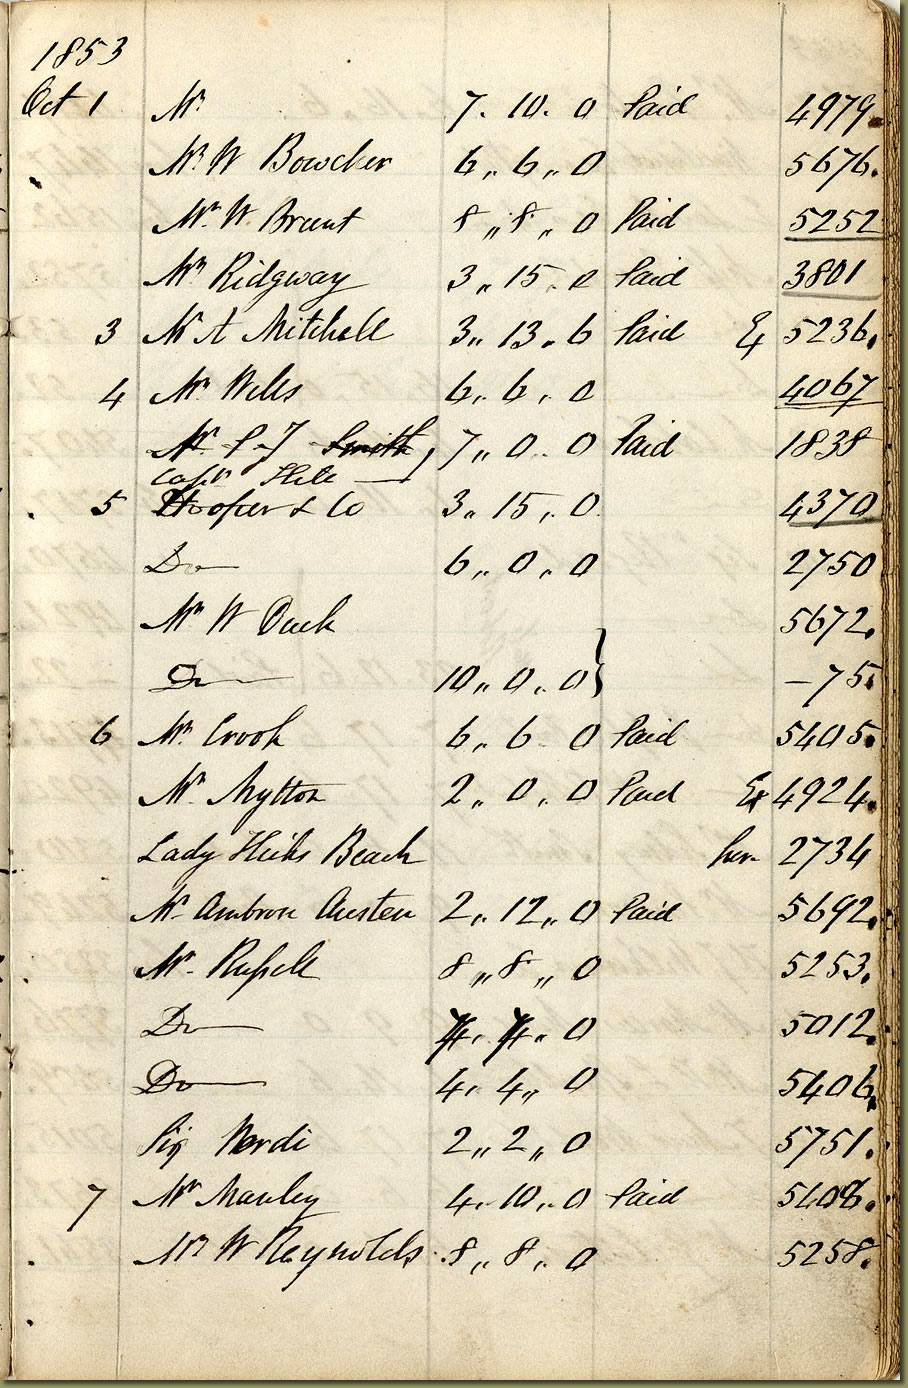 1853
Oct 1 Mr 7. 10. 0 Paid 4979.
Mr W Bowcher 6,, 6,, 0 5676.
Mr W. Brunt 8,, 8,, 0 Paid 5252
Mr Ridgway 3,, 15,, 0 Paid 3801
3 Mr A Mitchell 3,, 13,, 6 Paid Ex 5236.
4 Mr Wells 6,, 6,, 0 4067
Mr P J Smith 7,, 0. 0 Paid 1838
Capn Hill
5 Hooper & Co 3,, 15,, 0. 4370
Do 6,, 0,, 0 2750
Mr W Duck 5672.
Do 10,, 0,, 0 } – 75.
6 Mr Crook 6,, 6 0 Paid 5405.
Mr Mytton 2,, 0,, 0 Paid Ex 4924.
Lady Hicks Beach 2734
Mr Ambrose Austen 2,, 12,, 0 Paid 5692.
Mr Russell 8,, 8,, 0 5253.
Do 4,, 4,, 0 5012.
Do 4,, 4,, 0 5406.
Sig Verdi 2,, 2,, 0 5751.
7 Mr Manley 4,, 10,, 0 Paid 5408.
Mr W Reynolds 8,, 8,, 0 5258.